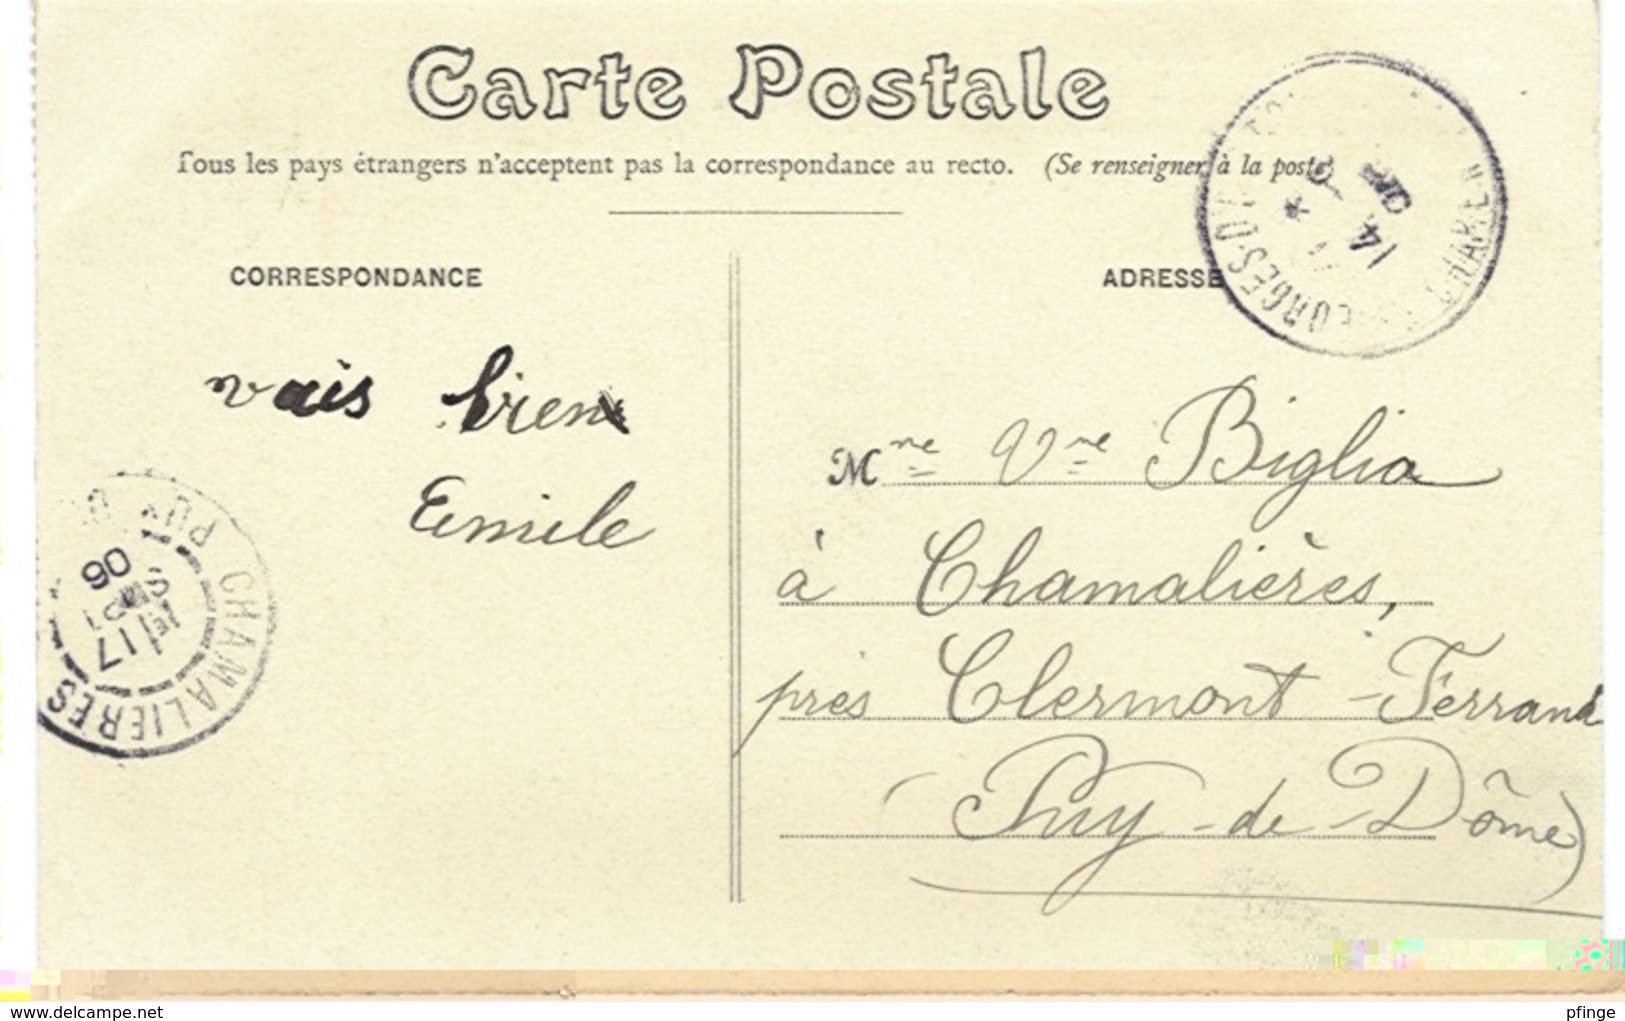 Carte Postale
Tous les pays étrangers n'acceptent pas la correspondance au recto. (Se renseigner à la poste)
CORRESPONDANCE
ADRESSE
vais bien
Emile
Mme Vve Biglia
à Chamalières,
près Clermont-Ferrand
(Puy-de-Dôme)
CHAMALIERES
17
06
14
www.delcampe.net
pfinge